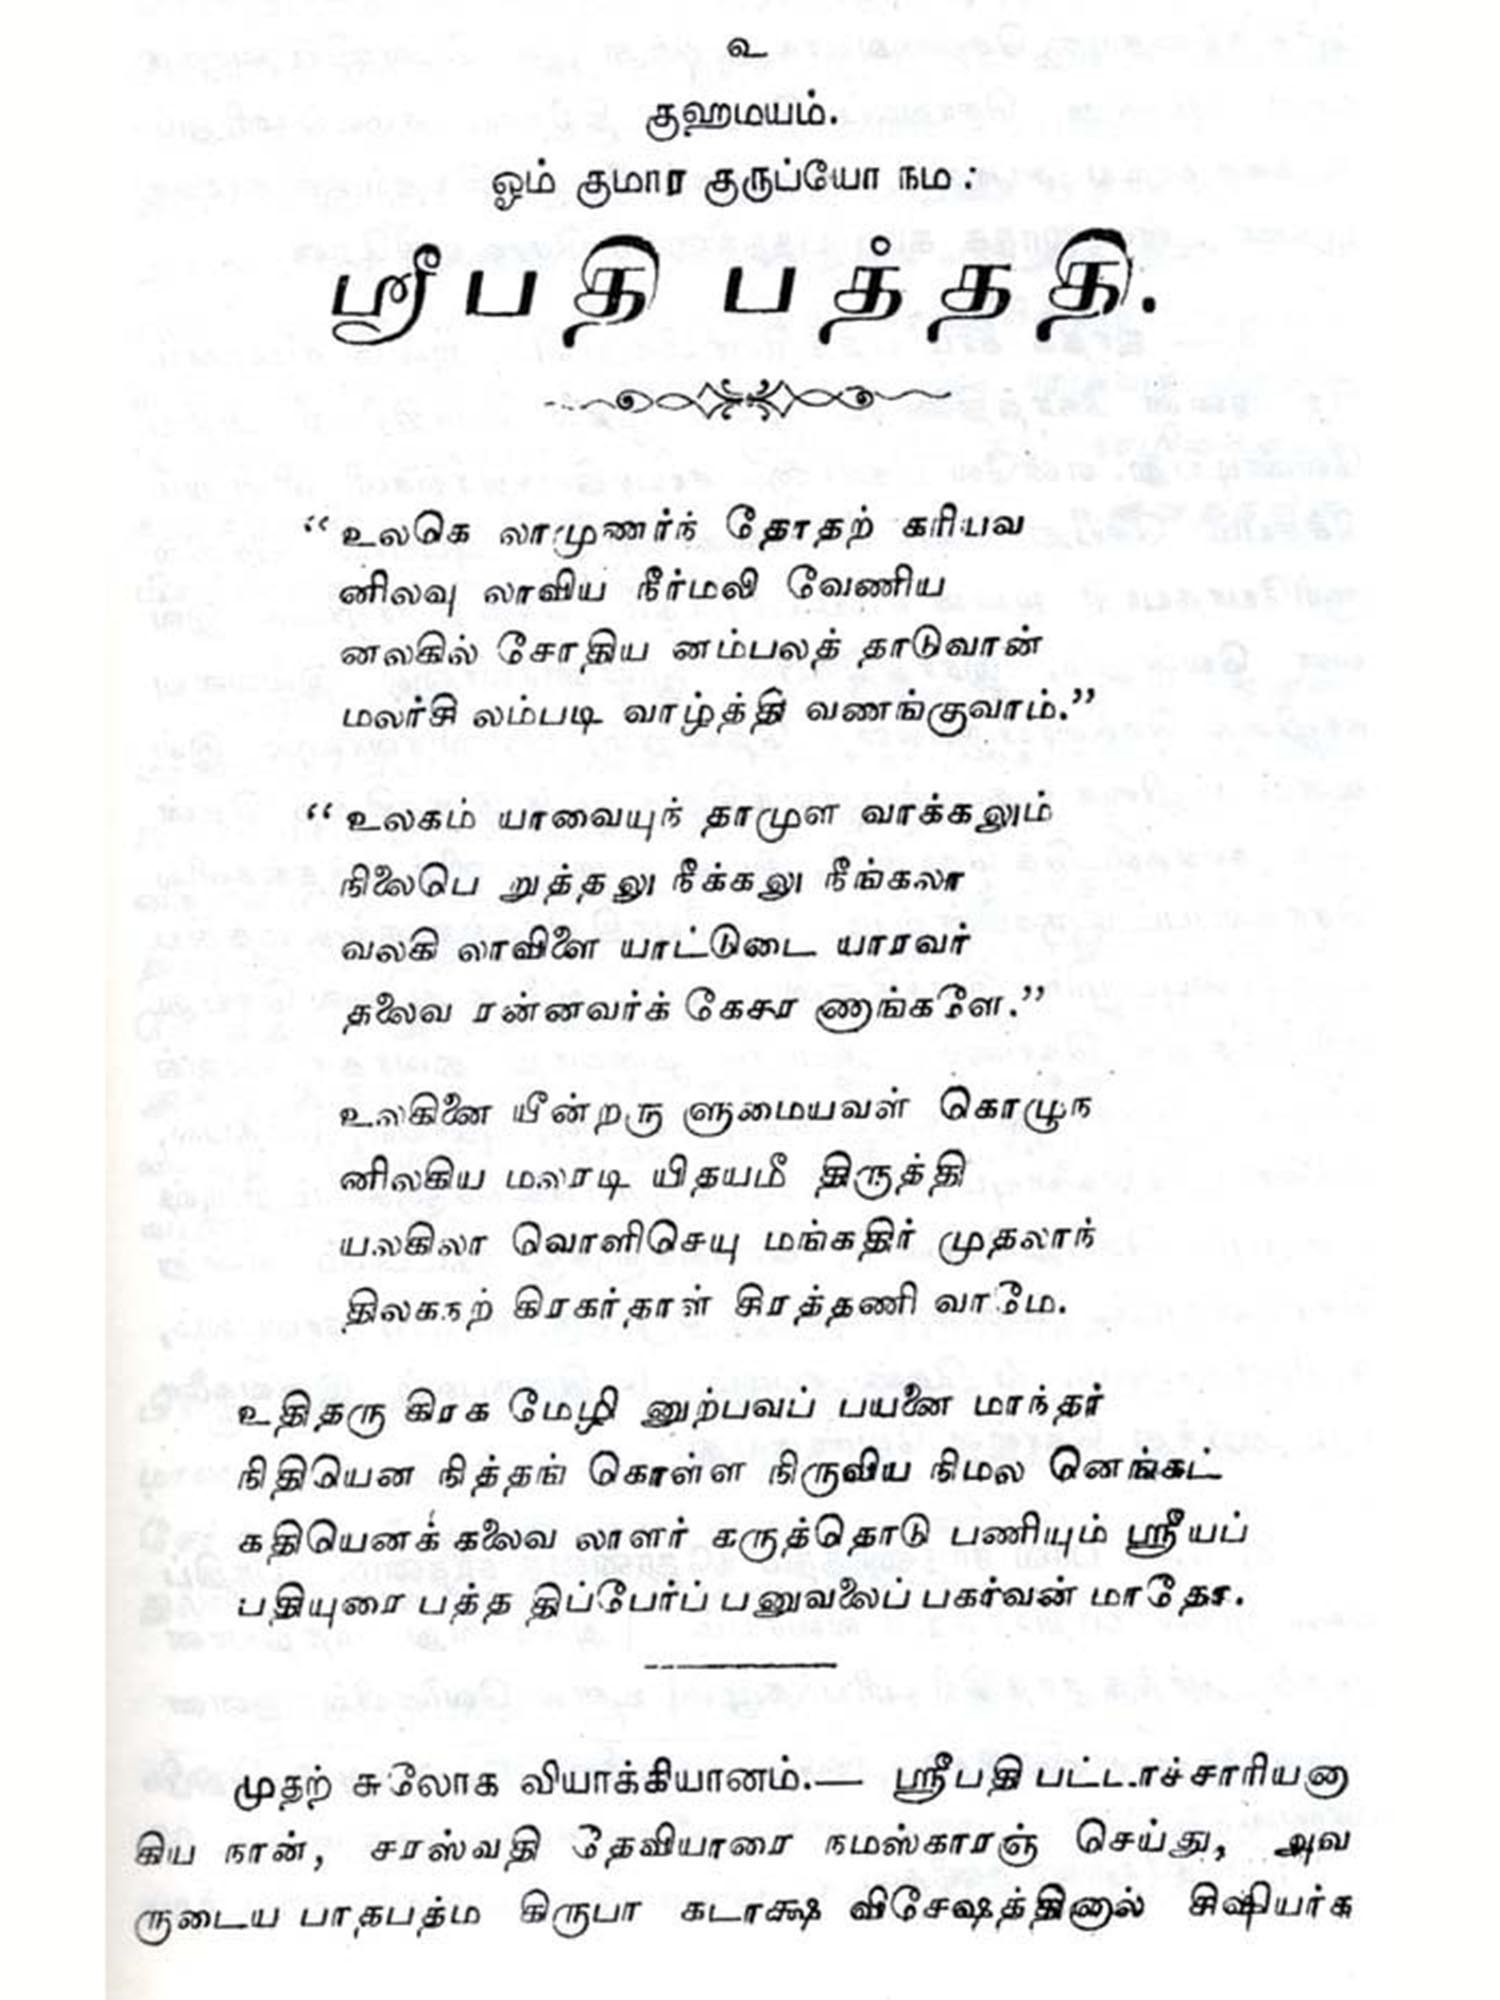 உ
குஹமயம்.
ஓம் குமார குருப்யோ நம:
ஸ்ரீபதி பத்ததி.
“உலகெ லாமுணர்ந் தோதற் கரியவ
னிலவு லாவிய நீர்மலி வேணிய
னலகில் சோதிய னம்பலத் தாடுவான்
மலர்சி லம்படி வாழ்த்தி வணங்குவாம்.”
“உலகம் யாவையுந் தாமுள வாக்கலும்
நிலைபெ றுத்தலு நீக்கலு நீங்கலா
வலகி லாவிளை யாட்டுடை யாரவர்
தலைவ ரன்னவர்க் கேசர ணாங்களே.”
உலகினை யீன்றரு ளுமையவள் கொழுந
னிலகிய மலரடி யிதயமீ திருத்தி
யலகிலா வொளிசெயு மங்கதிர் முதலாந்
திலகநற் கிரகர்தாள் சிரத்தணி வாமே.
உதிதரு கிரக மேழி னுற்பவப் பயனை மாந்தர்
நிதியென நித்தங் கொள்ள நிருவிய நிமல னெங்கட்
கதியெனக் கலைவ லாளர் கருத்தொடு பணியும் ஸ்ரீயப்
பதியுரை பத்த திப்பேர்ப் பனுவலைப் பகர்வன் மாதோ.
முதற் சுலோக வியாக்கியானம்.— ஸ்ரீபதி பட்டாச்சாரியனா
கிய நான், சரஸ்வதி தேவியாரை நமஸ்காரஞ் செய்து, அவ
ருடைய பாதபத்ம கிருபா கடாக்ஷ விசேஷத்தினால் சிஷியர்க